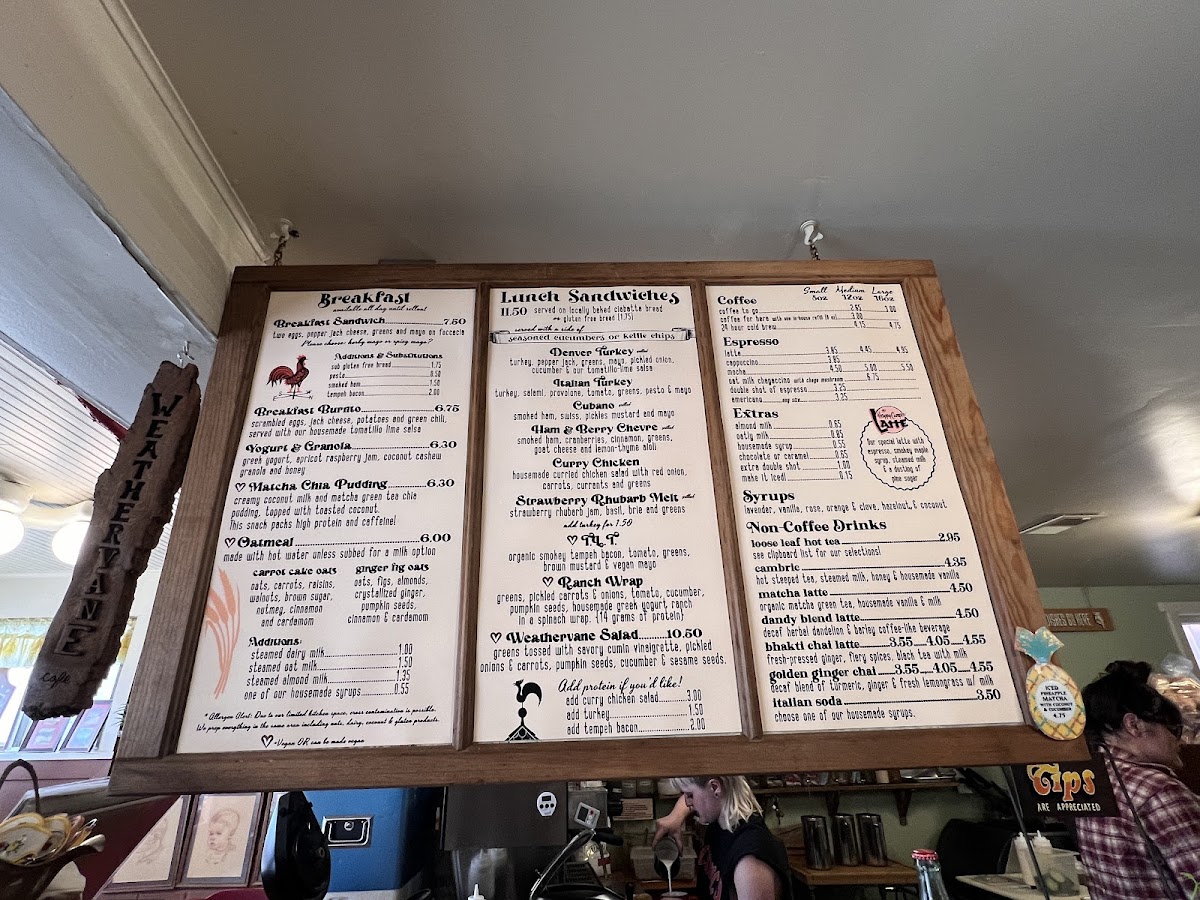 WEATHERVANE
cafe
Breakfast
available all day until sellout
Breakfast Sandwich 7.50
two eggs, pepper jack cheese, greens and mayo on foccacia
Please choose: herby mayo or spicy mayo?
Additions & Substitutions
sub gluten free bread 1.75
pesto 0.50
smoked ham 1.50
tempeh bacon 2.00
Breakfast Burrito 6.75
scrambled eggs, jack cheese, potatoes and green chili,
served with our housemade tomatillo lime salsa
Yogurt & Granola 6.30
greek yogurt, apricot raspberry jam, coconut cashew
granola and honey
♡ Matcha Chia Pudding 6.30
creamy coconut milk and matcha green tea chia
pudding, topped with toasted coconut.
This snack packs high protein and caffeine!
♡ Oatmeal 6.00
made with hot water unless subbed for a milk option
carrot cake oats
oats, carrots, raisins,
walnuts, brown sugar,
nutmeg, cinnamon
and cardamom
ginger fig oats
oats, figs, almonds,
crystallized ginger,
pumpkin seeds,
cinnamon & cardamom
Additions:
steamed dairy milk 1.00
steamed oat milk 1.50
steamed almond milk 1.35
one of our housemade syrups 0.55
* Allergen Alert: Due to our limited kitchen space, cross contamination is possible.
We prep everything in the same area including nuts, dairy, coconut & gluten products.
♡ =Vegan OR can be made vegan
Lunch Sandwiches
11.50 served on locally baked ciabatta bread
or gluten free bread (1.75)
served with a side of
seasoned cucumbers or kettle chips
Denver Turkey grilled
turkey, pepper jack, greens, mayo, pickled onion,
cucumber & our tomatillo-lime salsa
Italian Turkey
turkey, salami, provalone, tomato, greens, pesto & mayo
Cubano grilled
smoked ham, swiss, pickles mustard and mayo
Ham & Berry Chevre grilled
smoked ham, cranberries, cinnamon, greens,
goat cheese and lemon-thyme aioli
Curry Chicken
housemade curried chicken salad with red onion,
carrots, currants and greens
Strawberry Rhubarb Melt grilled
strawberry rhubarb jam, basil, brie and greens
add turkey for 1.50
♡ T.L.T.
organic smokey tempeh bacon, tomato, greens,
brown mustard & vegan mayo
♡ Ranch Wrap
greens, pickled carrots & onions, tomato, cucumber,
pumpkin seeds, housemade greek yogurt ranch
in a spinach wrap. (14 grams of protein)
♡ Weathervane Salad 10.50
greens tossed with savory cumin vinaigrette, pickled
onions & carrots, pumpkin seeds, cucumber & sesame seeds.
Add protein if you'd like!
add curry chicken salad 3.00
add turkey 1.50
add tempeh bacon 2.00
Coffee Small Medium Large
8oz 12oz 16oz
coffee to go 2.65 3.00
coffee for here 3.00
24 hour cold brew 4.15 4.75
Espresso
latte 3.85 4.45 4.95
cappuccino 3.85
mocha 4.50 5.00 5.50
oat milk chagaccino with chaga mushroom 6.75
double shot of espresso 3.25
americano any size 3.25
Extras
almond milk 0.65
oatly milk 0.85
housemade syrup 0.55
chocolate or caramel 0.65
extra double shot 1.00
make it iced! 0.15
Happy Camper
LATTE
Our special latte with
espresso, smokey maple
syrup, steamed milk
& a dusting of
pine sugar
Syrups
lavender, vanilla, rose, orange & clove, hazelnut, & coconut
Non-Coffee Drinks
loose leaf hot tea 2.95
see clipboard list for our selections!
cambric 4.35
hot steeped tea, steamed milk, honey & housemade vanilla
matcha latte 4.50
organic matcha green tea, housemade vanilla & milk
dandy blend latte 4.50
decaf herbal dandelion & barley coffee-like beverage
bhakti chai latte 3.55 4.05 4.55
fresh-pressed ginger, fiery spices, black tea with milk
golden ginger chai 3.55 4.05 4.55
decaf blend of turmeric, ginger & fresh lemongrass w/ milk
italian soda 3.50
choose one of our housemade syrups.
ICED
PINEAPPLE
MATCHA
WITH COCONUT
& CUCUMBER
4.75
Tips
ARE APPRECIATED